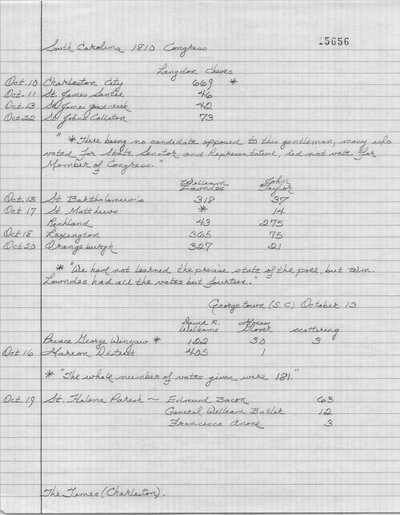 South Carolina 1810 Congress
15656
Langdon Cheves
Oct. 10 Charleston City 669 *
Oct. 11 St. James Santee 46
Oct. 13 St. James Goose Creek 40
Oct. 22 St. Johns Colleton 73
" * "There being no candidate opposed to this gentleman, many who
voted for State Senator and Representative, did not vote for
Member of Congress."
William Lowndes John Taylor
Oct. 15 St. Bartholomew's 318 37
Oct 17 St. Matthews * 14
Richland 43 275
Oct 18 Lexington 365 75
Oct 20 Orangeburgh 327 21
* "We have not learned the precise state of the poll, but Wm.
Lowndes had all the votes but fourteen."
Georgetown (S.C.) October 13
David R. Williams Glover scattering
Prince George Winyaw * 122 30 3
Oct 16 Marion District 405 1
* "The whole number of votes given were 181."
Oct. 19 St. Helena Parish — Edmund Bacon 63
General William Butler 12
Francisco 3
The Times (Charleston).